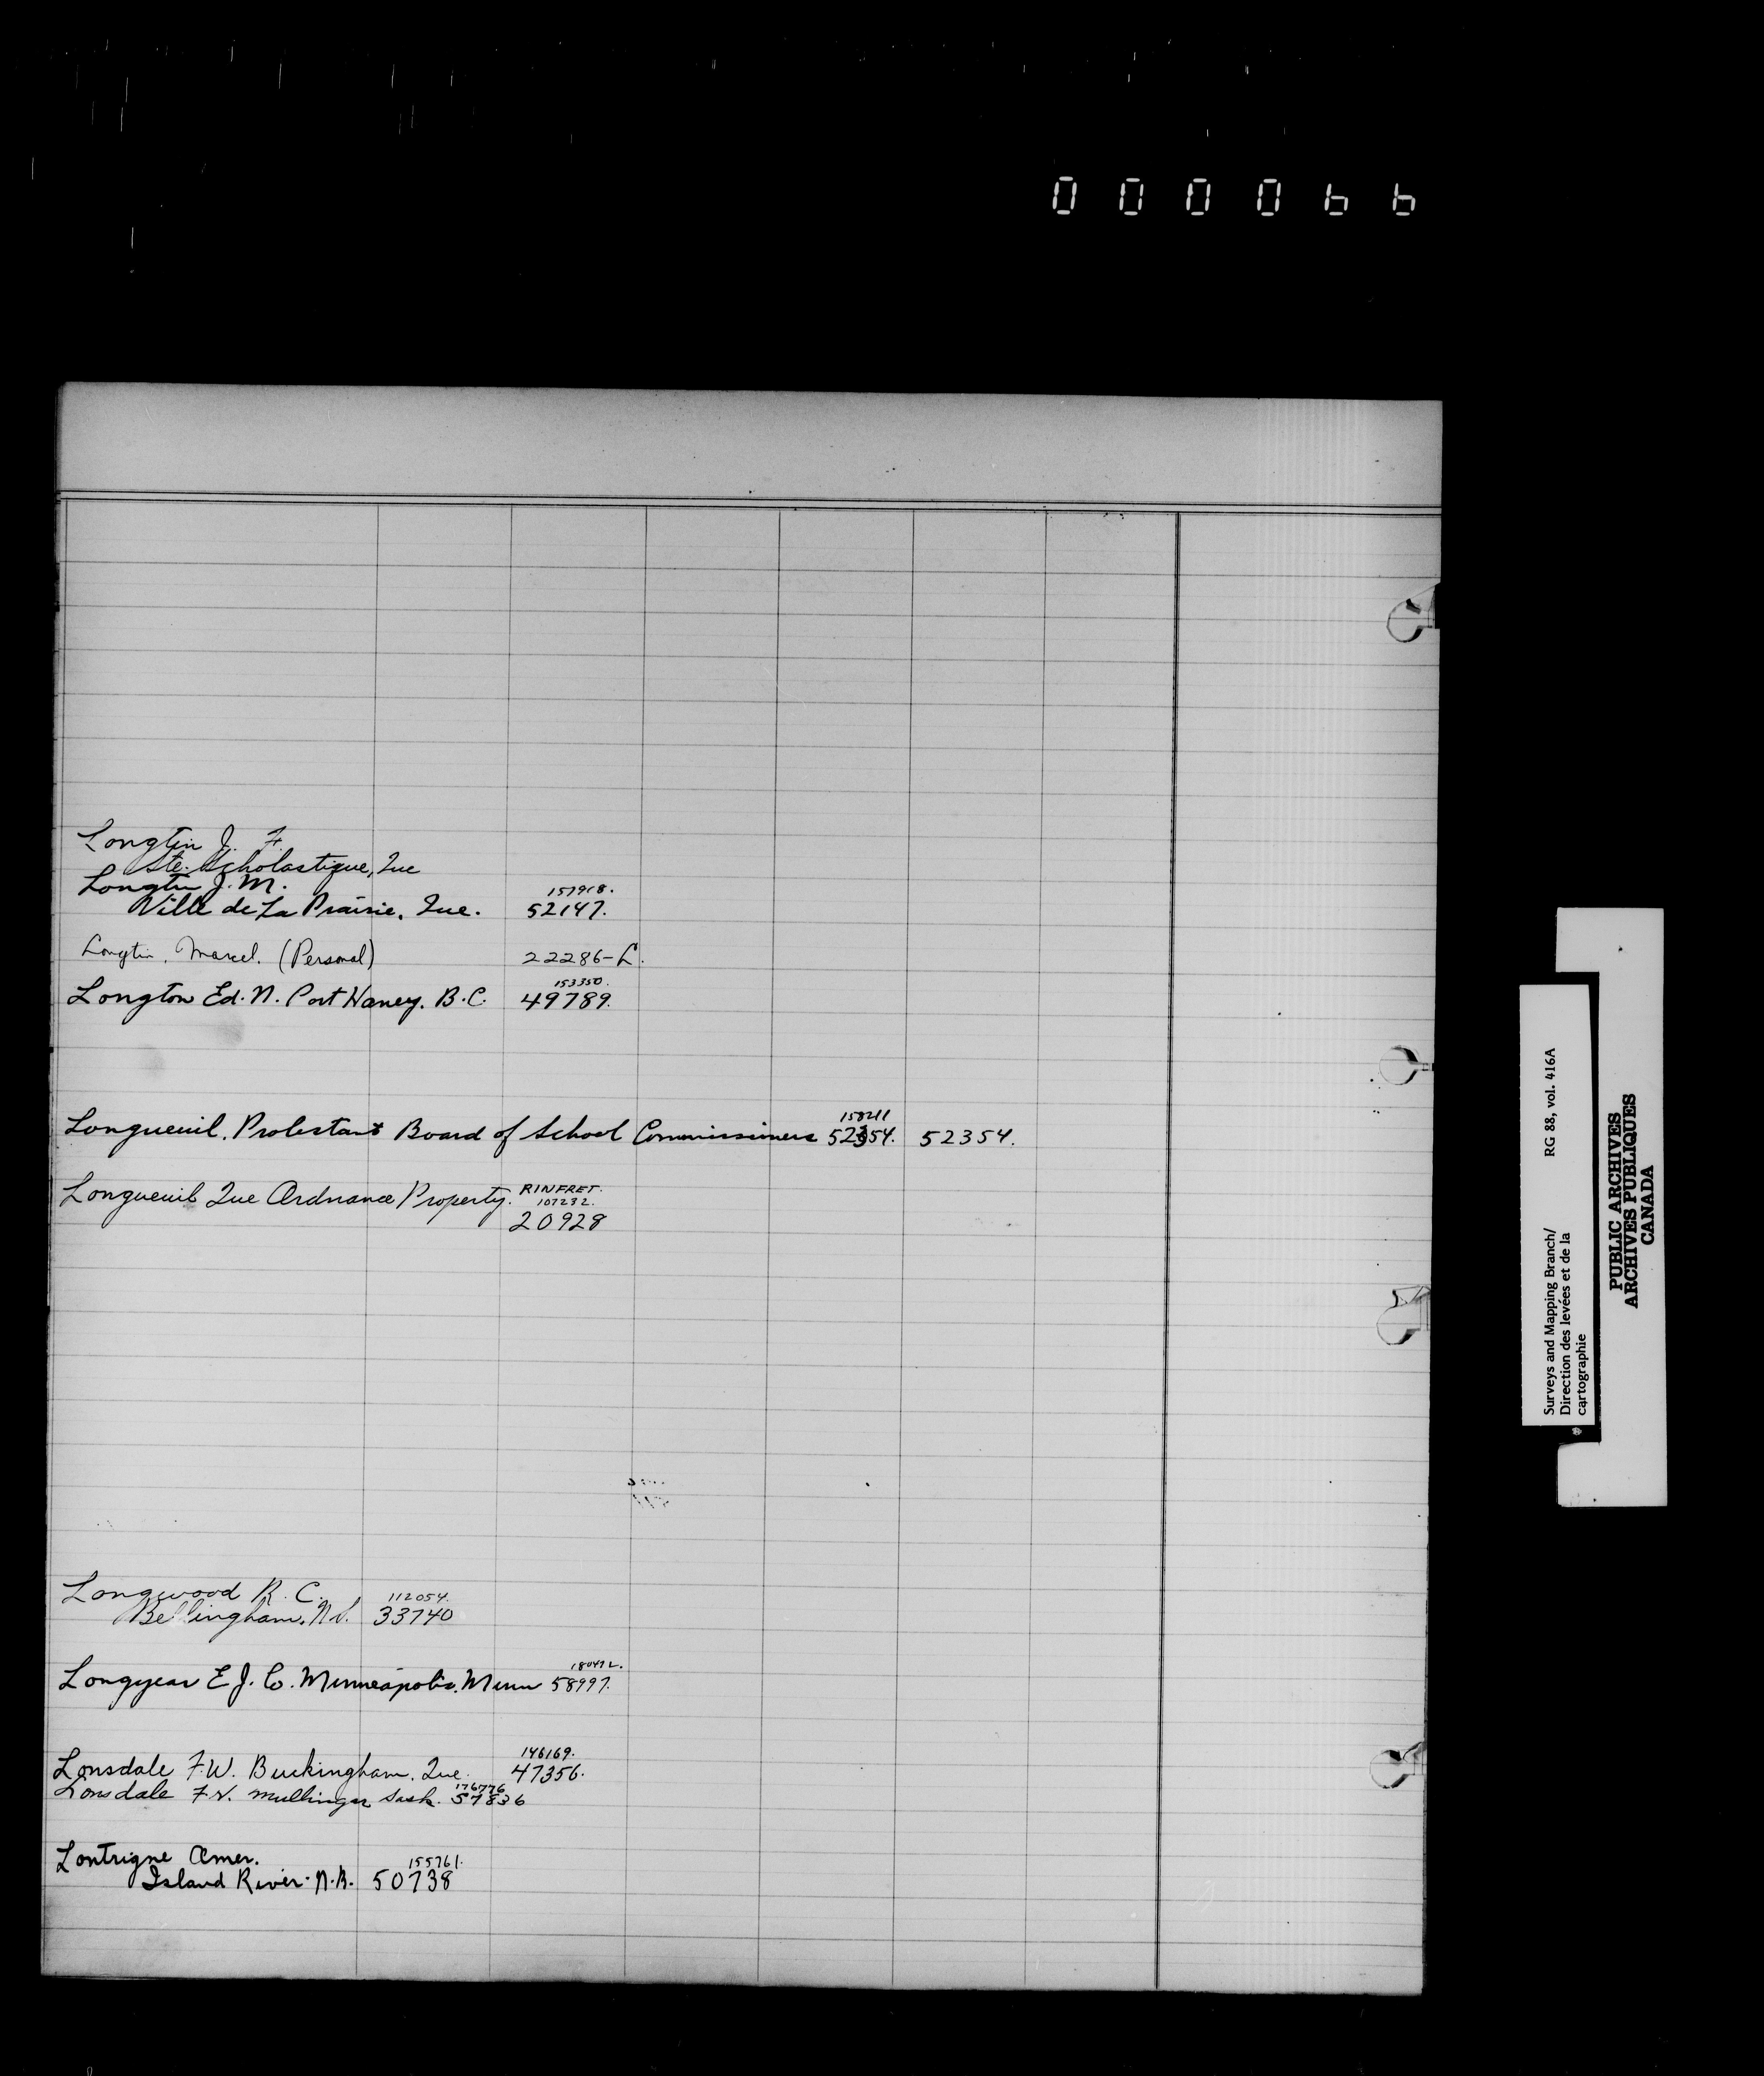 000066
Longtin J. F.
Ste. Scholastique, Que
Longtin J. M. 157918.
Ville de La Prairie, Que. 52147.
Longtin, Marcel. (Personal) 22286-L.
153350.
Longton Ed. N. Port Haney. B.C. 49789.
158211
Longueuil, Protestant Board of School Commissioners 52354. 52354.
Longueuil Que Ordnance Property. RINFRET.
107232.
20928
Longwood R. C. 112054.
Bellingham, 33740
180472.
Longyear E. J. Co. Minneapolis, Minn 58997.
146169.
Lonsdale F. W. Buckingham, Que. 47356.
176776
Lonsdale Sask. 57836
Lontrigne Omer. 155761.
Island River. N.B. 50738
Surveys and Mapping Branch/ RG 88, vol. 416A
Direction des levées et de la
cartographie
PUBLIC ARCHIVES
ARCHIVES PUBLIQUES
CANADA